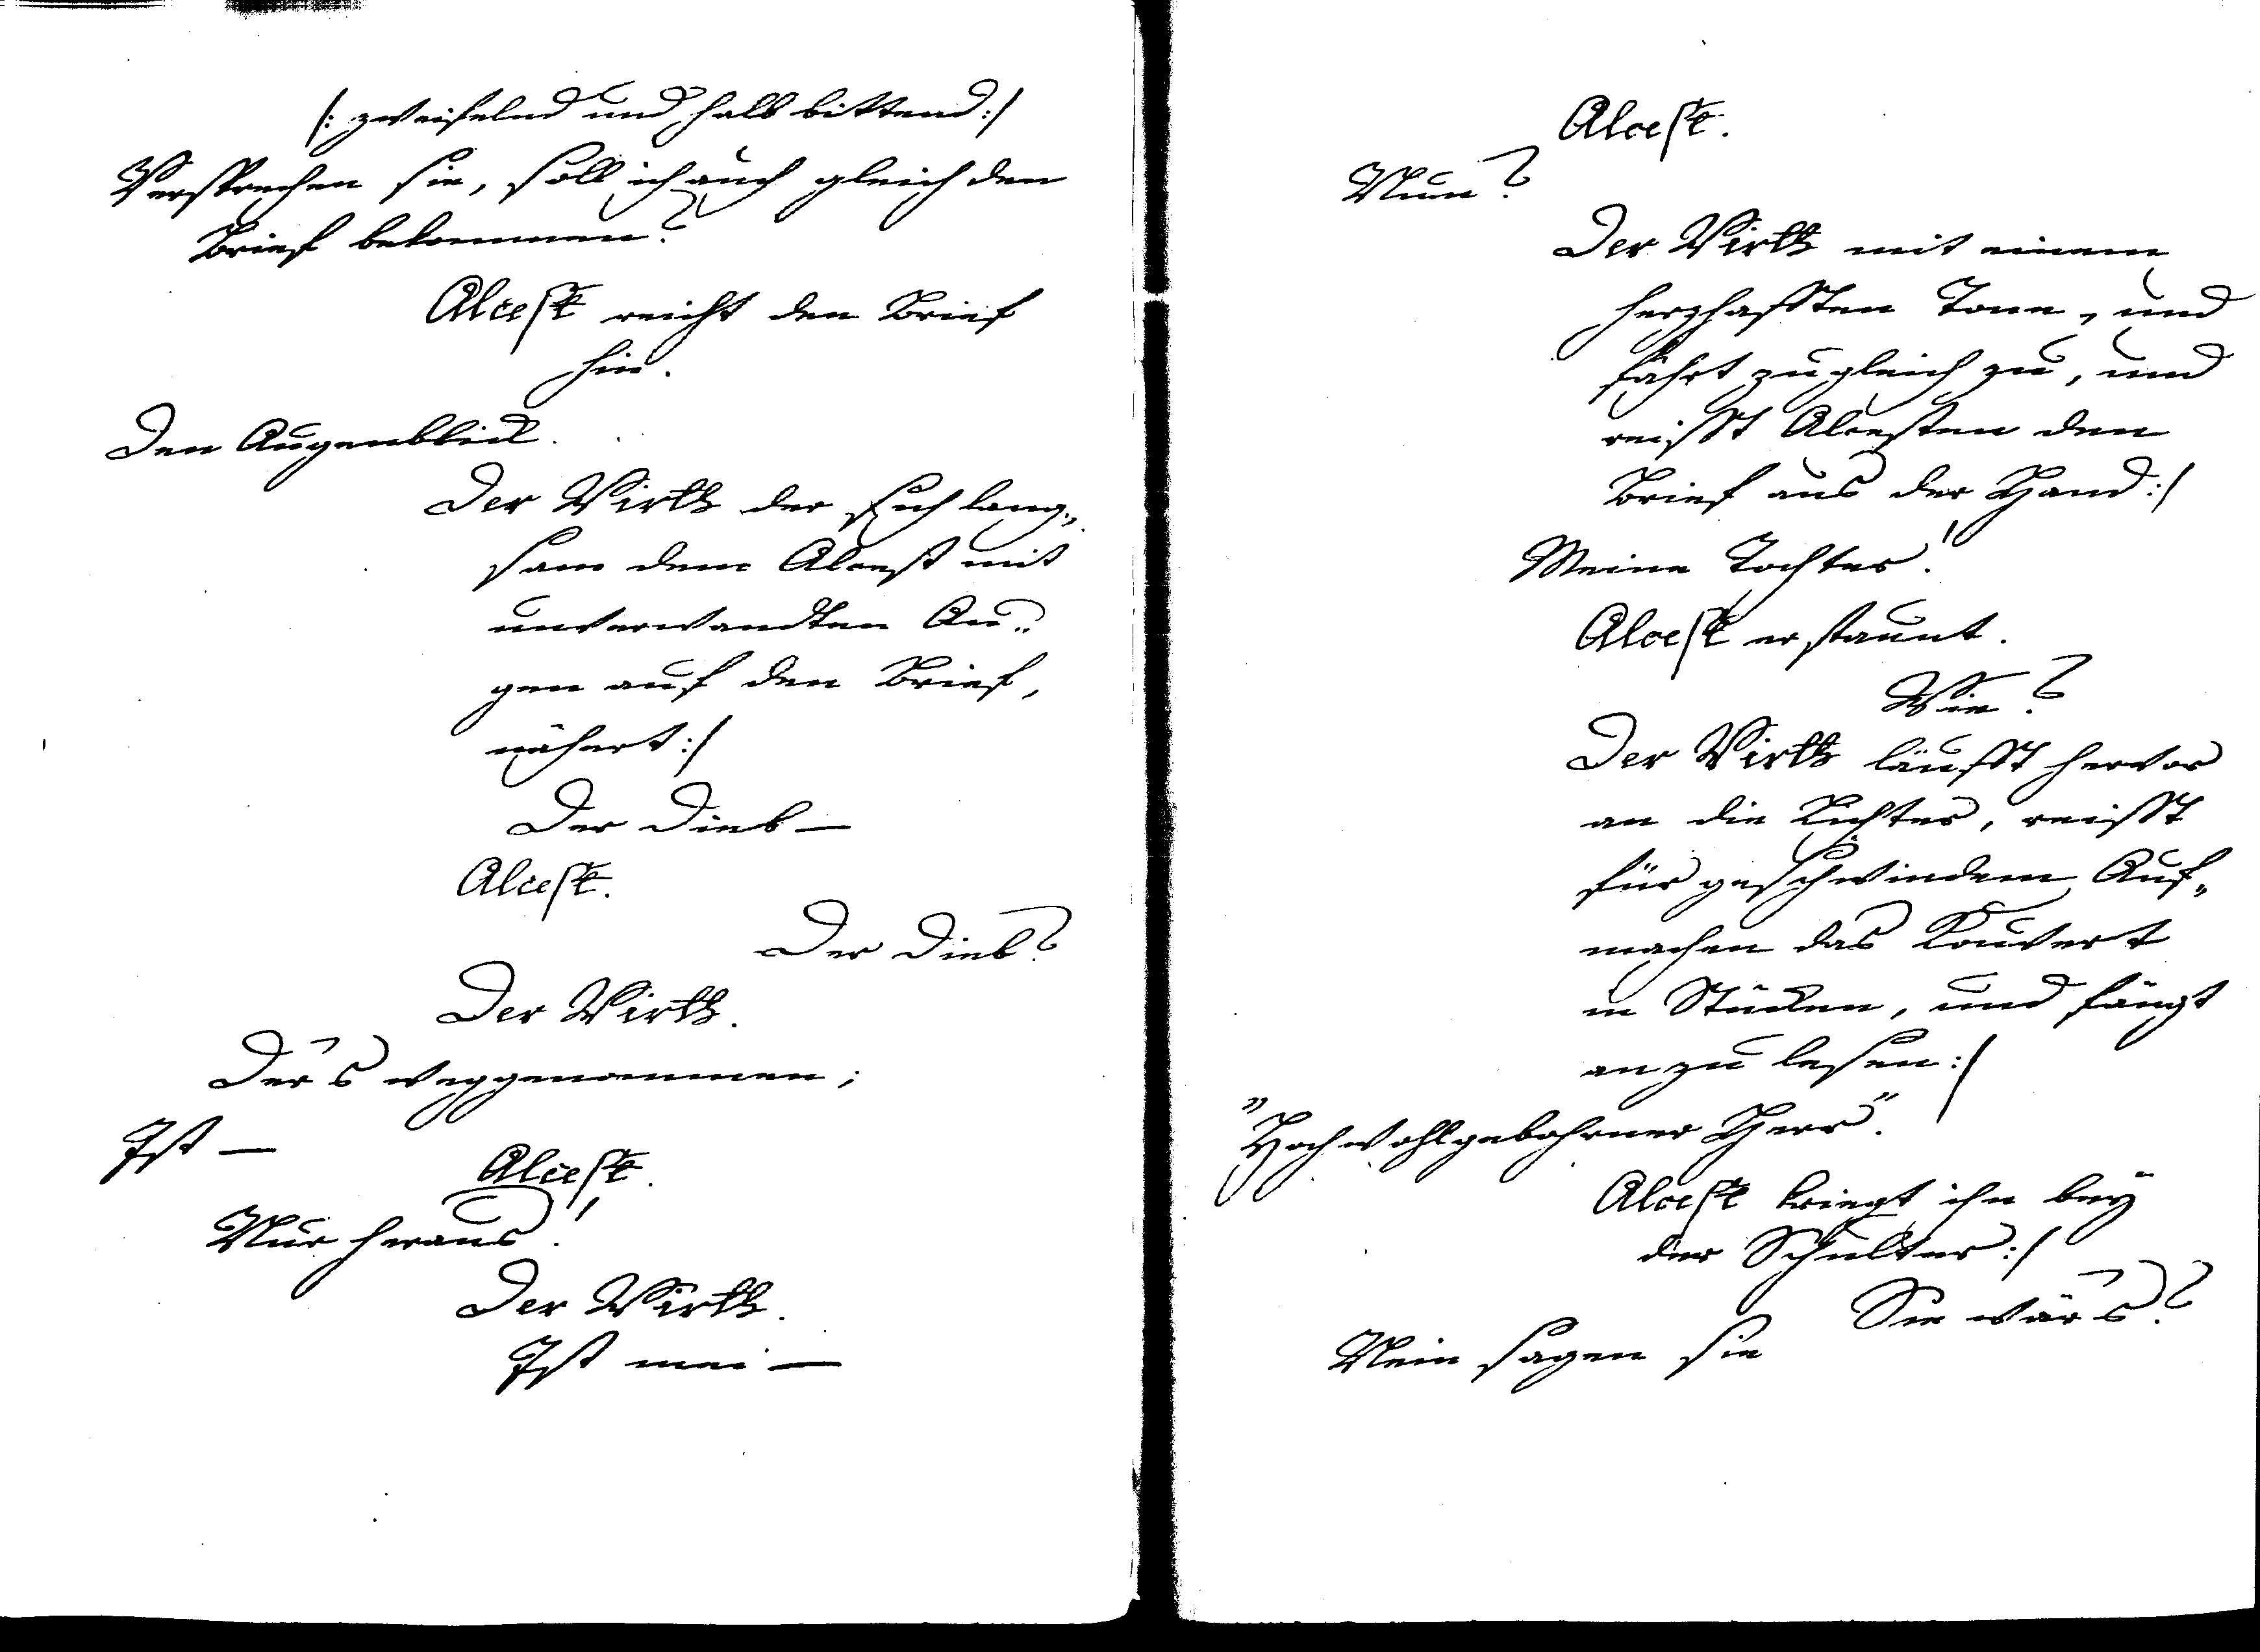 /: zweifelnd und halb bittend :/
Versprechen sie, soll ich auch gleich den
Brief bekommen?
Alcest reicht den Brief
hin.
Den Augenblick.
Der Wirth der sich lang„
sam dem Alcest mit
unverwandten Au„
gen auf den Brief,
nähert :/
Der Dieb —
Alcest.
Der Dieb?
Der Wirth.
Der's weggenommen;
Ist —
Alcest.
Nur heraus!
Der Wirth.
Ist mei —
Alcest.
Nun?
Der Wirth mit einem
herzhafften Tone, und
fährt zugleich zu, und
reisst Alcesten den
Brief aus der Hand :/
Meine Tochter!
Alcest erstaunt.
Wie?
Der Wirth läufft hervor
an die Lichter, reisst
für geschwindem Auf„
machen das Kouvert
in Stücken, und fängt
an zu lesen :/
„Hochwohlgebohrner Herr".
Alcest kriegt ihn bey
der Schulter :/
Sie wär's?
Nein sagen sie